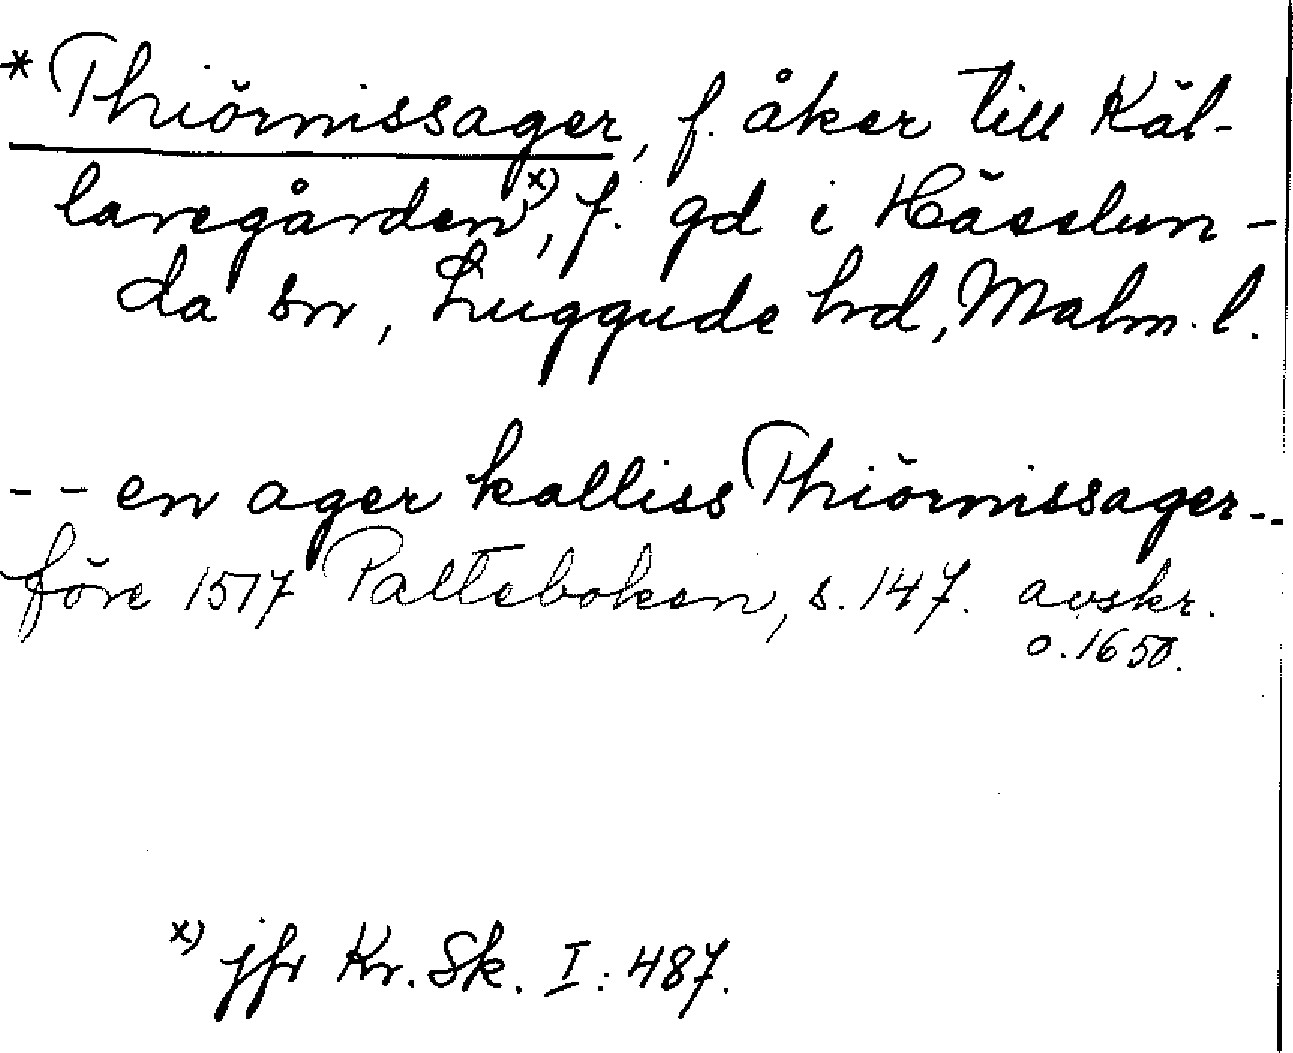 * Thiörnissager, f. åker till Käl-
laregården x), f. gd i Hässlun-
da sn, Luggude hd, Malm. l.
-- en ager kalliss Thiörnissager --
före 1517 Palteboken, s. 147. avskr.
o. 1650.
x) jfr Kr. Sk. I: 487.